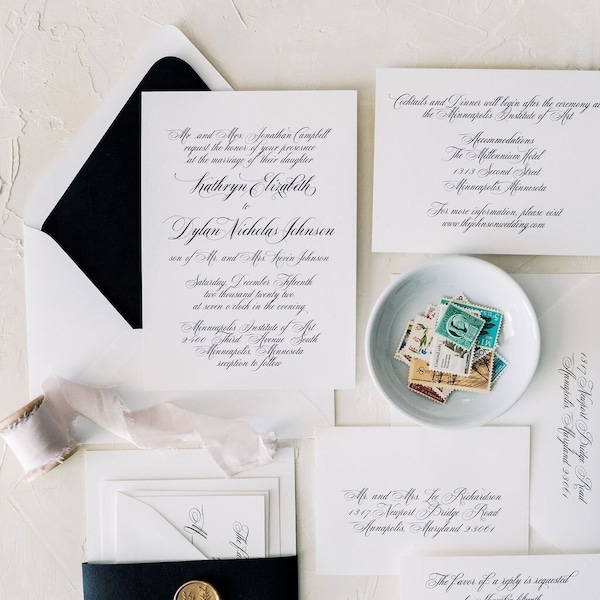 Mr. and Mrs. Jonathan Campbell
request the honor of your presernce
at the marriage of their daughter
Kathryn Elizabeth
to
Dylan Nicholas Johnson
son of Mr. and Mrs. Kevin Johnson
Saturday, December Fifteenth
two thousand twenty two
at seven o'clock in the evening
Minneapolis Institute of Art
2400 Third Avenue South
Minneapolis, Minnesota
reception to follow
Cocktails and Dinner will begin after the ceremony at
the Minneapolis Institute of Art
Accommodations
The Millennium Hotel
1313 Second Street
Minneapolis, Minnesota
For more information, please visit
www.thejohnsonwedding.com
1317 Newport Bridge Road
Annapolis, Maryland 23061
Mr. and Mrs. Lee Richardson
1317 Newport Bridge Road
Annapolis, Maryland 23061
The favor of a reply is requested